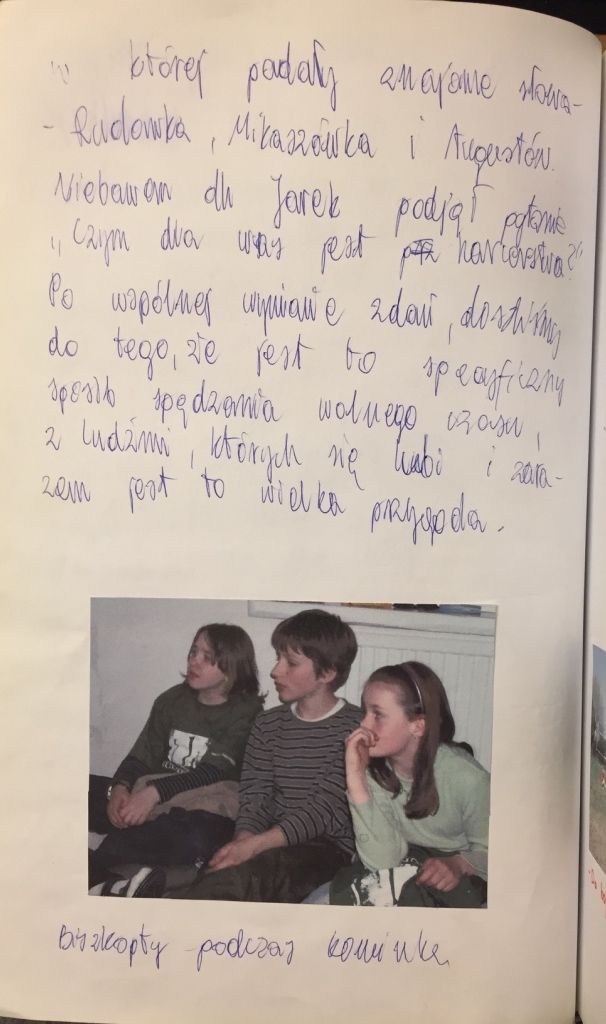 w której padały znajome słowa -
- Rudawka, Mikaszówka i Augustów.
Niebawem dh Jarek podjął pytanie
"Czym dla was jest harcerstwo?"
Po wspólnej wymianie zdań, doszliśmy
do tego, że jest to specyficzny
sposób spędzania wolnego czasu,
z ludźmi, których się lubi i zara-
zem jest to wielka przygoda.
Biszkopty podczas kominka.